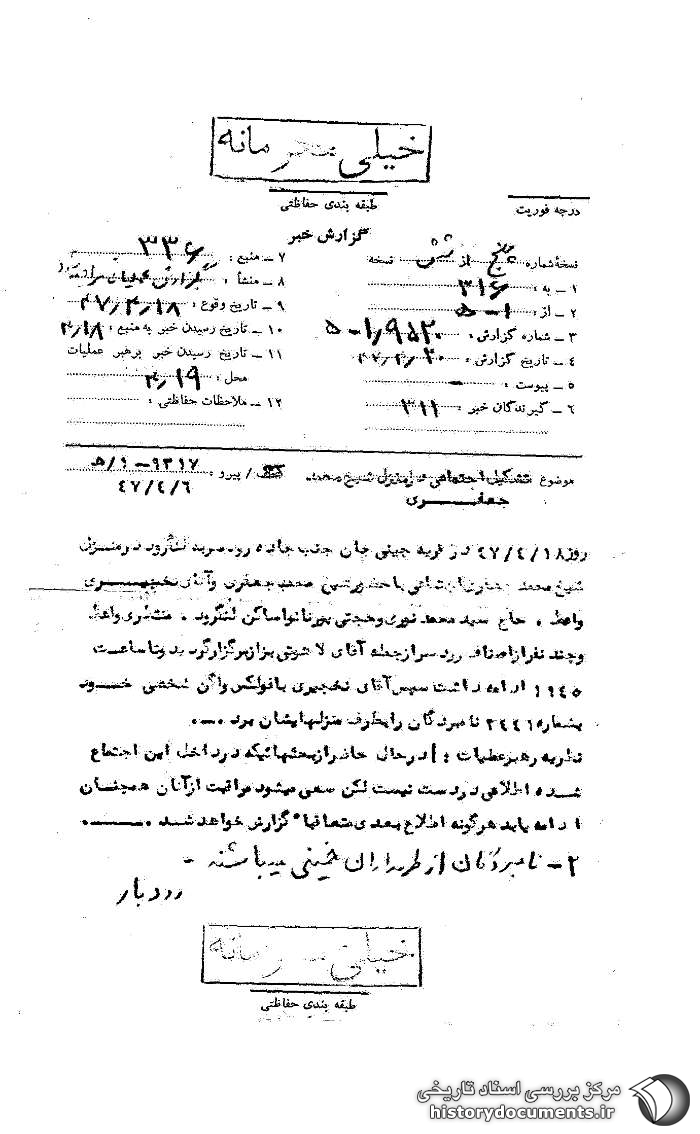 خیلی محرمانه
طبقه بندی حفاظتی
درجه فوریت
گزارش خبر
نسخهٔ شماره پنج از شش نسخه
۱ ـ به : ۳۱۶
۲ ـ از : ۱-ه
۳ ـ شماره گزارش :
۴ ـ تاریخ گزارش :
۵ ـ پیوست : -
۶ ـ گیرندگان خبر : ۳۱۱
۷ ـ منبع : ۳۳۶
۸ ـ منشأ : گزارش عملیات
۹ ـ تاریخ وقوع : ۴۷/۴/۱۸
۱۰ ـ تاریخ رسیدن خبر به منبع : ۴/۱۸
۱۱ ـ تاریخ رسیدن خبر برهبر عملیات
محل : ۴/۱۹
۱۲ ـ ملاحظات حفاظتی :
موضوع تشکیل اجتماعی در منزل شیخ محمد
جعفری
/ پیرو : ۹۳۱۷-۱/ه
۴۷/۴/۶
روز ۴۷/۴/۱۸ در قریه جینی جان جنب جاده رودسربه لنگرود در منزل
شیخ محمد جعفری اجتماعی با حضور شیخ محمد جعفری وآقای نحجیری
واعظ . حاج سید محمد نوری وحجتی نانوا ساکن لنگرود . منتظری واعظ
وچند نفر از اصناف رودسر از جمله آقای لاهوتی بزاز برگزار گردید وتا ساعت
۱۹۴۵ ادامه داشت سپس آقای نحجیری با فولکس واگن شخصی خود
بشماره ۲۴۴۱۵ نامبردگان را بطرف منزلهایشان برد .ـ.
نظریه رهبر عملیات : ۱ـ در حال حاضر از بحثهائیکه در داخل این اجتماع
شده اطلاعی در دست نیست لکن سعی میشود مراقبت از آنان همچنان
ادامه یابد هرگونه اطلاع بعدی متعاقبا" گزارش خواهد شد .ـــ.
۲- نامبردگان از طرفداران خمینی میباشند -
رودبار
خیلی محرمانه
طبقه بندی حفاظتی
مرکز بررسی اسناد تاریخی
historydocuments.ir